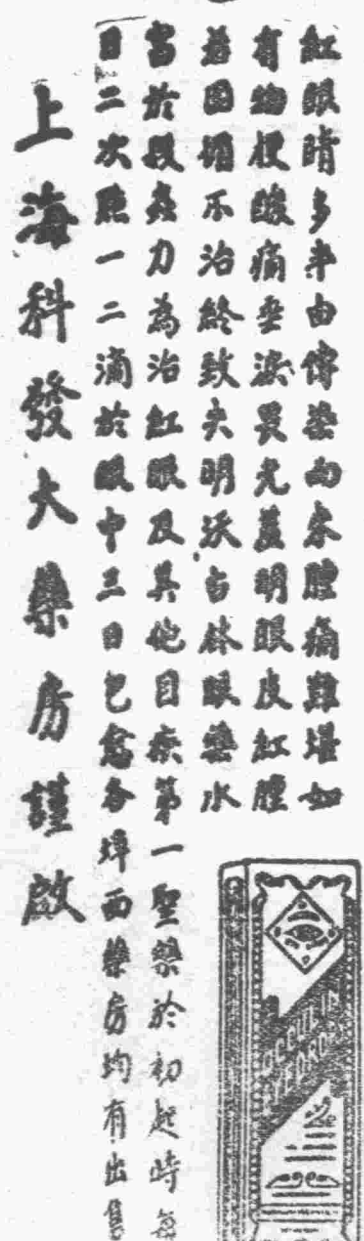 紅眼睛多半由傳染而來腫痛難堪如
有物梗酸痛垂淚畏光羞明眼皮紅腫
若因循不治終致失明沃古林眼藥水
富於殺虫力為治紅眼及其他目疾第一聖藥於初起時每
日二次點一二滴於眼中三日包愈各埠西藥房均有出售
上海科發大藥房謹啟